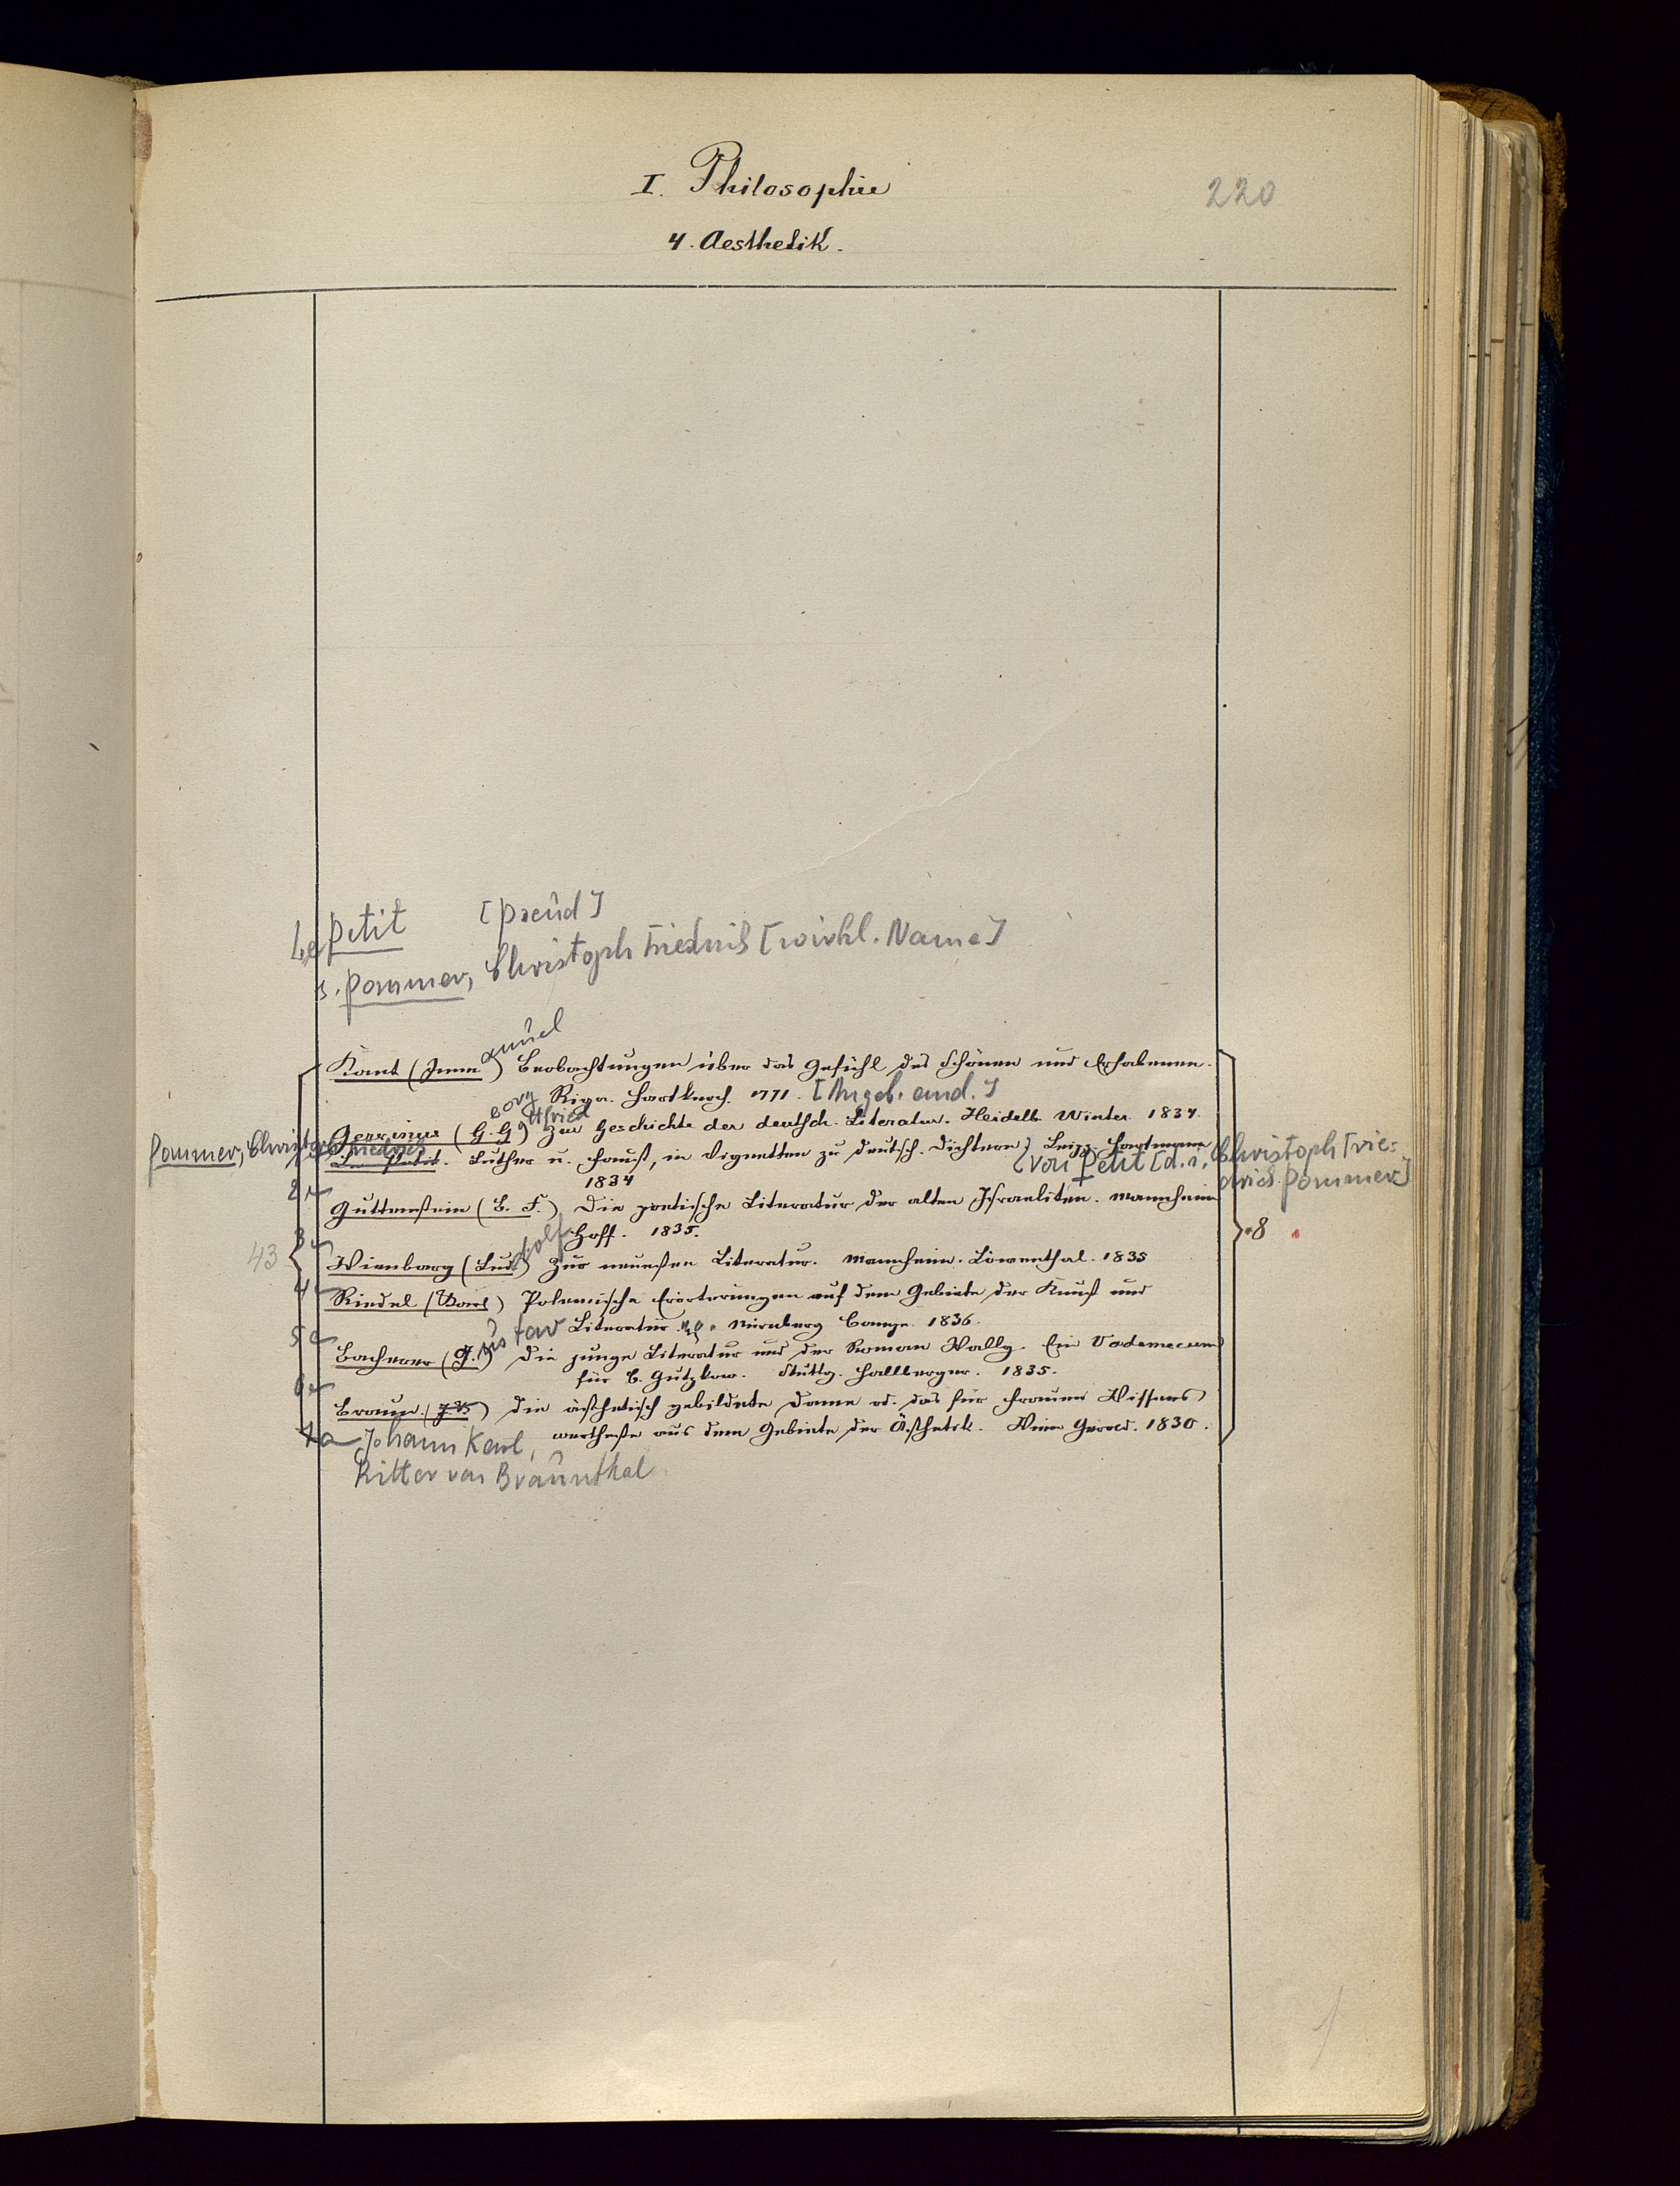 I. Philosophie
220
4. Aesthetik.
Le Petit [Pseud]
s. Pommer, Christoph Friedrich [wirkl. Name]
Kant (Immanuel) Beobachtungen über das Gefühl des Schönen und Erhabenen.
Riga. Hartknoch. 1771. [Angeb. and.]
Gervinus (G. G) eorg ttfried Zur Geschichte der deutsch. Literatur. Heidelb. Winter. 1834.
Pommer, Christoph Friedrich
Le Petit. Luther u. Faust, in Vignetten zu deutsch. Dichtern} Leipz. Hartmann
{von Petit [d. i. Christoph Frie=
drich Pommer]
1834
2a Guttenstein (B. F.) Die poetische Literatur der alten Israeliten. Mannheim
Hoff. 1835.
3a
43 Wienbarg (Ludolf) Zur neuesten Literatur. Mannheim. Löwenthal. 1835
8
4a Riedel (Karl) Polemische Erörterungen auf dem Gebiete der Kunst und
Literatur. Nürnberg Campe. 1836.
5a Bacherer (Gustav) Die junge Literatur und der Roman Wally. Ein Vademecum
für C. Gutzkow. Stuttg. Hallberger. 1835.
6a
Braun. (J. K) Die ästhetisch gebildete Dame od. das für Frauen Wissens
wertheste aus dem Gebiete der Ästhetik. Wien Gerold. 1830.
7a Johann Karl,
Ritter von Braunthal